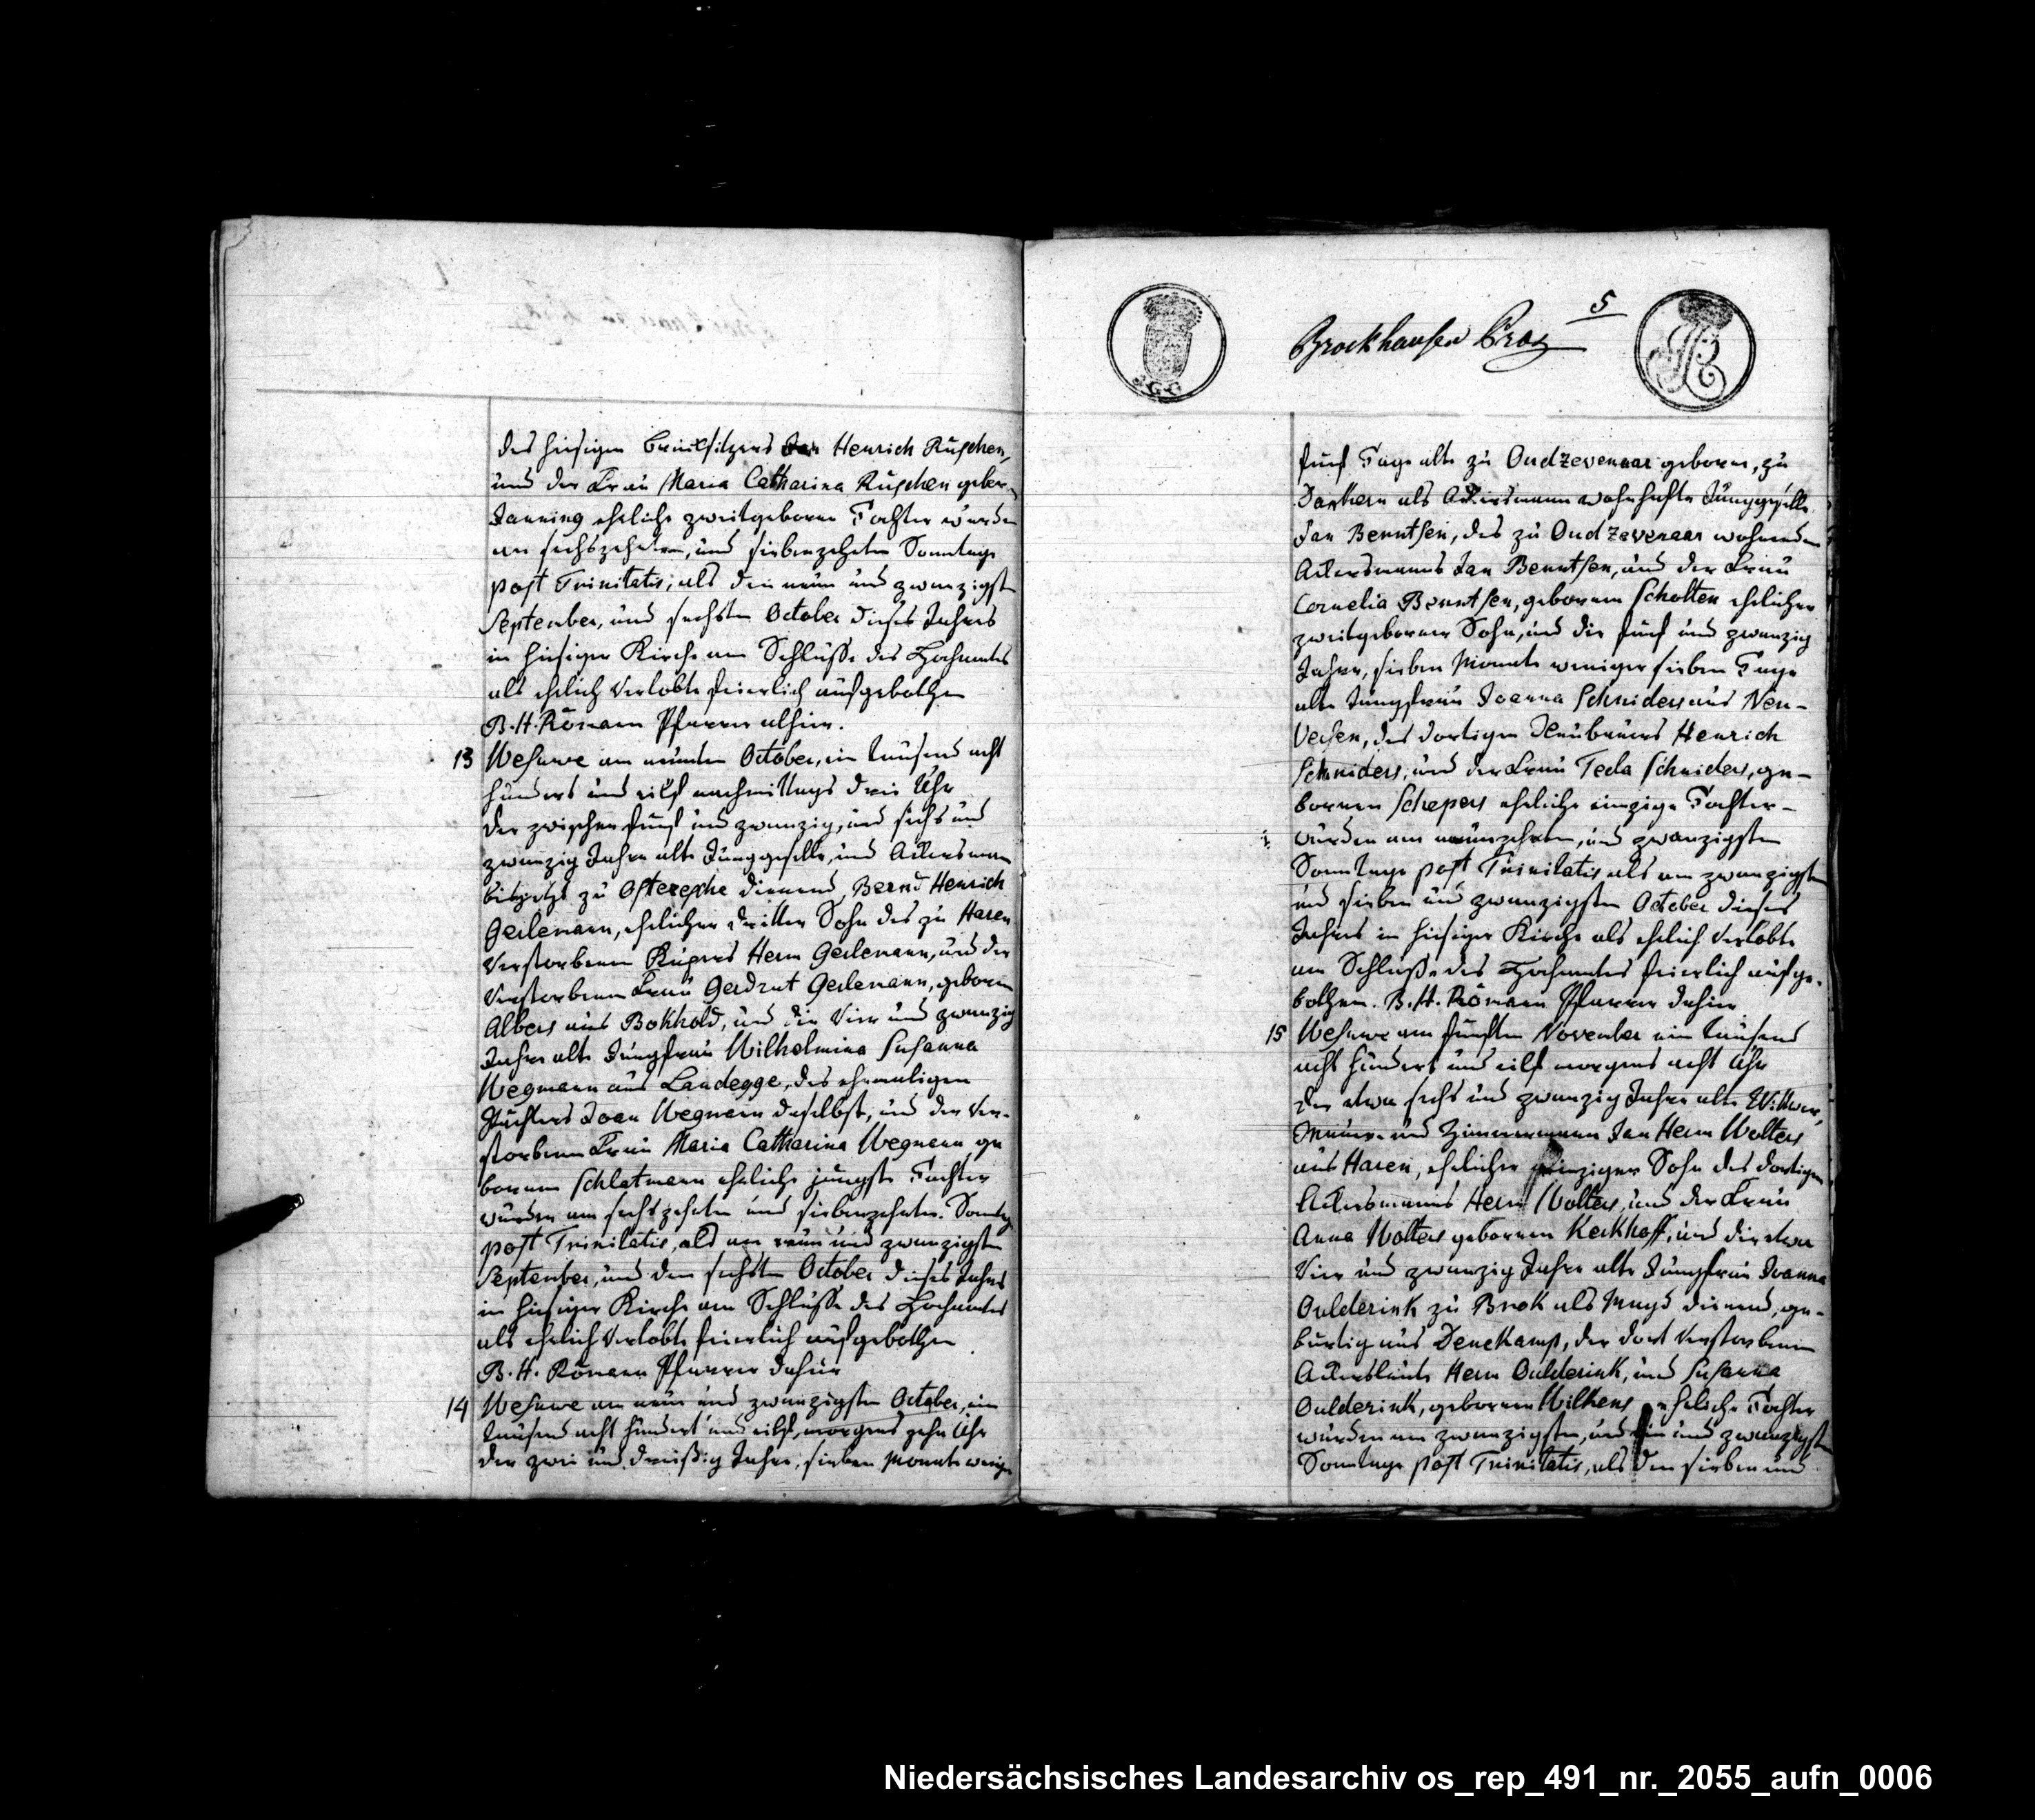 des hiesigen Brinksitzers Jan Henrich Ruschen,
und der Frau Maria Catharina Ruschen gebor.
Janning eheliche zweitgeborne Tochter wurden
am sechszehnten, und siebenzehnten Sonntage
post Trinitatis, als den neun und zwanzigsten
September, und sechsten October dieses Jahres
in hiesiger Kirche am Schlusse des Hochamtes
als ehelich Verlobte feierlich aufgebothen
B. H. Römann Pfarrer alhier.
13 Wesuwe am neunten October, ein tausend acht
hundert und eilf nachmittags drei Uhr
der zwischen fünf und zwanzig, und sechs und
zwanzig Jahre alte Junggeselle, und Ackersmann
bis jetzt zu Osteresche dienend, Bernd Henrich
Gerlemann, ehelicher dritter Sohn des zu Haren
verstorbenen Kupers Herm Gerlemann, und der
verstorbenen Frau Gerdrut Gerlemann, geboren
Albers aus Bokhold, und die vier und zwanzig
Jahre alte Jungfrau Wilhelmina Susanna
Wegmann aus Landegge, des ehemaligen
Pächters Joan Wegmann daselbst, und der ver-
storbenen Frau Maria Catharina Wegmann ge
bornen Schlatmann eheliche jüngste Tochter
wurden am sechszehnten und siebenzehnten Sonntag
post Trinitatis, als am neun und zwanzigsten
September, und den sechsten October dieses Jahres
in hiesiger Kirche am Schlusse des Hochamtes
als ehelich Verlobte feierlich aufgebothen
B. H. Römann Pfarrer dahier
14 Wesuwe am neun und zwanzigsten October, ein
tausend acht hundert und eilf, morgens zehn Uhr
der zwei und dreißig Jahre, sieben Monate weniger
Brockhausen Croz 5
fünf Tage alte zu Oudzevenaar geborne, zu
als Ackersmann wohnhafte Junggeselle
Jan Berntsen, des zu Oudzevenaar wohnenden
Ackersmanns Jan Berntsen, und der Frau
Cornelia Berntsen, gebornen Scholten ehelicher
zweitgeborner Sohn, und die fünf und zwanzig
Jahre, sieben Monate weniger sieben Tage
alte Jungfrau Joanna Schniders aus Neu-
Versen, des dortigen Neubauers Henrich
Schniders, und der Frau Tecla Schniders, ge-
bornen Schepers eheliche einzige Tochter-
wurden am neunzehnten, und zwanzigsten
Sonntage post Trinitatis als am zwanzigsten
und sieben und zwanzigsten October dieses
Jahres in hiesiger Kirche als ehelich Verlobte
am Schluße des Hochamtes feierlich aufge-
bothen. B. H. Römann Pfarrer dahier
15 Wesuwe am fünften November ein tausend
acht hundert und eilf morgens acht Uhr
der etwa sechs und zwanzig Jahre alte Wittwer,
Maurer und Zimmermann Jan Herm Wolters
aus Haren, ehelicher einziger Sohn des dortigen
Ackersmanns Herm Wolters, und der Frau
Anna Wolters gebornen Kerkhoff, und die etwa
vier und zwanzig Jahre alte Jungfrau Joanna
Oulderink zu Brook als Magd dienend, ge-
bürtig aus Denekamp, der dort verstorbenen
Ackersleute Herm Oulderink, und Susanna
Oulderink, gebornen Wilkens eheliche Tochter
wurden am zwanzigsten, und ein und zwanzigsten
Sonntage post Trinitatis, als den sieben und
Niedersächsisches Landesarchiv os_rep_491_nr._2055_aufn_0006